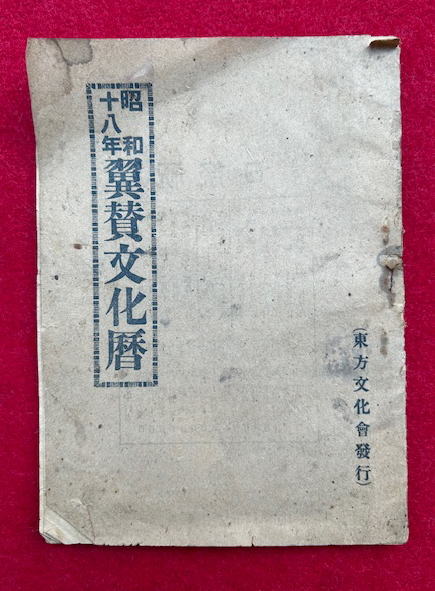 昭和十八年翼賛文化暦
(東方文化會發行)